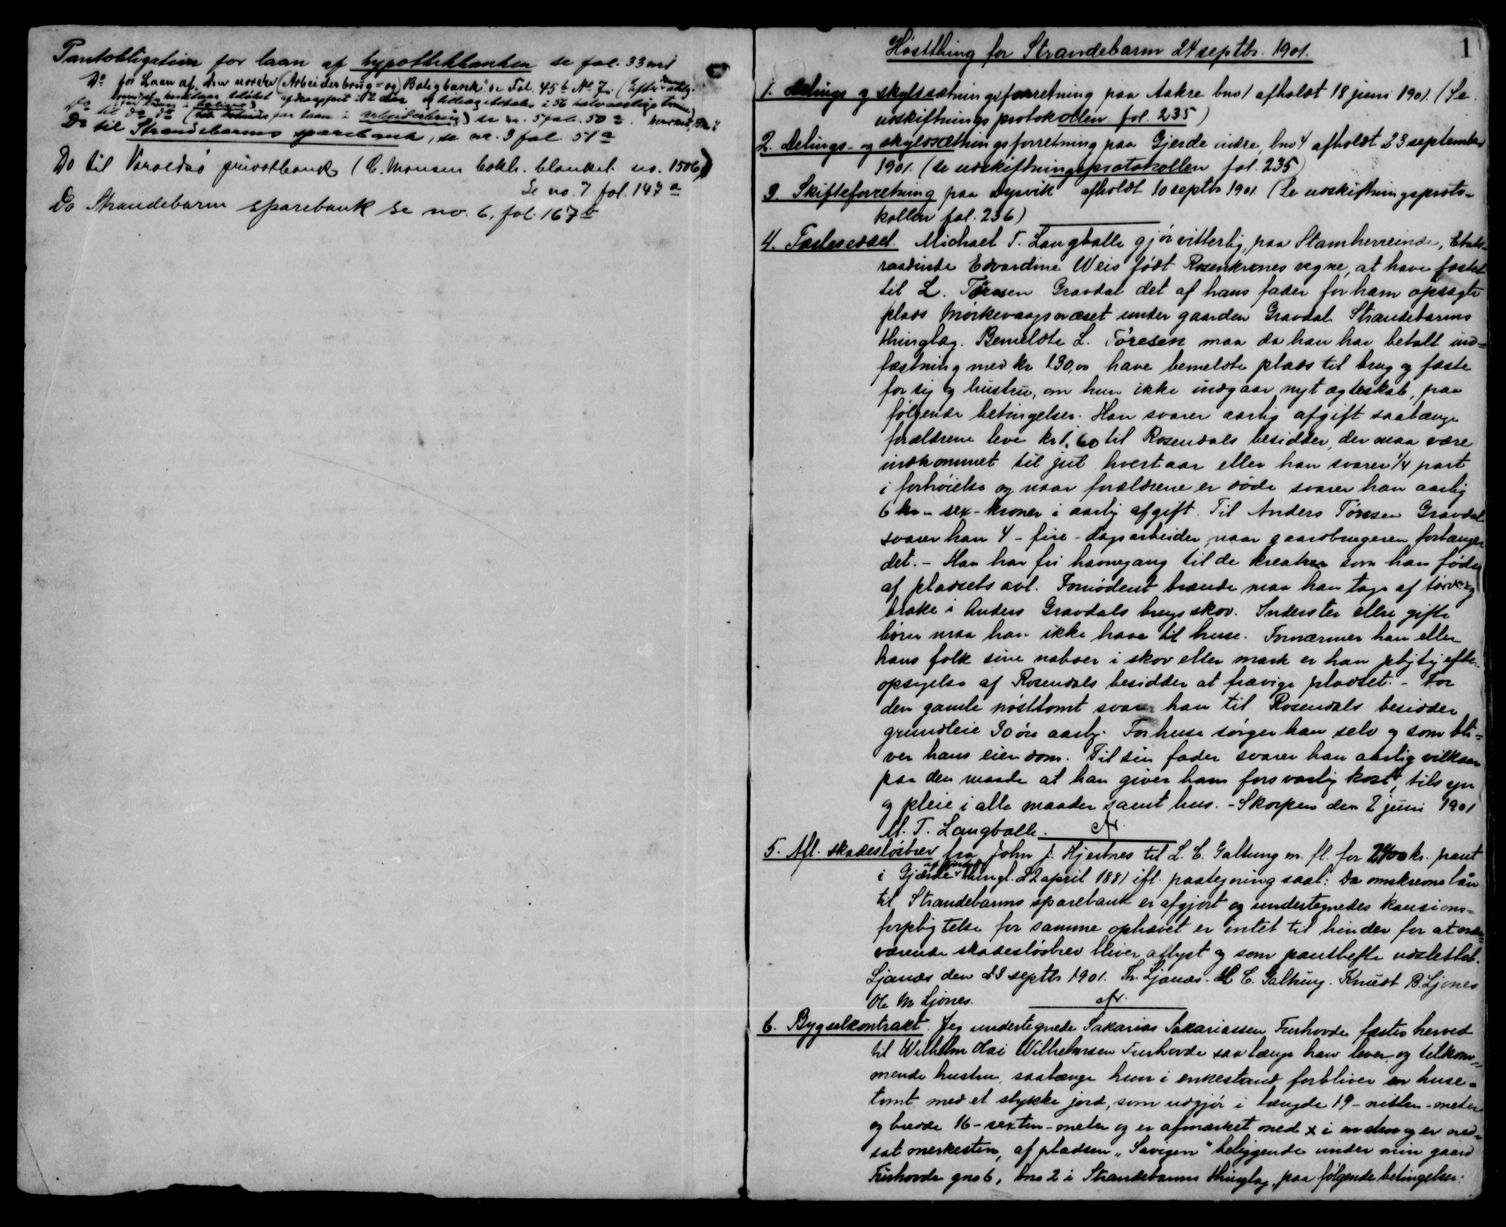 Pantobligation for laan af hypothekbanken se fol. 33 nr 1
Do for Laan af den norske (Arbeiderbrug- og) Boligbank se Fol. 45 b No 7.
Do til Do Do se nr. 5 fol. 50 a
Do til Strandebarms sparebank, se nr. 3 fol. 51 a
Do til Varaldsø privatbank (C. Monsen bokh. blanket no. 1506)
Se no. 7 fol. 147 a
Do Strandebarm sparebank se no. 6, fol. 167 b
1
Høstthing for Strandebarm 24 septbr. 1901.
1. Delings og skyldsætningsforretning paa Aakre bno 1 afholdt 18 juni 1901. (Se
udskiftningsprotokollen fol. 235)
2. Delings- og skyldsætningsforretning paa Gjerde indre, bno 4 afholdt 23 september
1901. (Se udskiftningsprotokollen fol. 235)
3. Skifteforretning paa Dysvik afholdt 10 septbr 1901. (Se udskiftningsproto-
kollen fol. 236)
4. Fæsteseddel. Michael T. Langballe gjør vitterlig, paa Stamherreinde, Etats-
raadinde Edvardine Weis født Rosenkrones vegne, at have fæstet
til L. Tøresen Gravdal det af hans fader for ham opsagte
plads Mørkevaagsneset under gaarden Gravdal Strandebarms
thinglag. Bemeldte L. Tøresen maa da han har betalt ind-
fæstning med kr 130,00 have bemeldte plads til brug og fæste
for sig og hustru, om hun ikke indgaar nyt ægteskab, paa
følgende betingelser. Han svarer aarlig afgift saalænge
forældrene leve kr 1,60 til Rosendals besidder, der maa være
indkommet til jul hvert aar eller han svarer 1/4 part
i forhøielse og naar forældrene er døde svarer han aarlig
6 kr - sex - kroner i aarlig afgift. Til Anders Tøresen Gravdal
svarer han 4 - fire - dagsarbeider naar gaardbrugeren forlanger
det. - Han har fri havnegang til de kreature som han føder
af pladsets avl. Fornødent brænde maa han tage af tørved og
brake i Anders Gravdals brugs skov. Inderster eller gifte
børn maa han ikke have til huse. Fornærmer han eller
hans folk sine naboer i skov eller mark er han pligtig efter
opsigelse af Rosendals besidder at fravige pladset. - For
den gamle nøsttomt svarer han til Rosendals besidder
grundleie 30 øre aarlig. For huse sørger han selv og som bli-
ver hans eiendom. Til sin fader svarer han aarlig vilkaar
paa den maade at han giver ham forsvarlig kost, tilsyn
og pleie i alle maader samt hus. - Skorpen den 2 juni 1901
M. T. Langballe.
5. Afl. skadesløsbrev fra John J. Hjertnes til L. C. Galtung m. fl. for 2400 kr. pant
i Gjærde thingl. 22 april 1881 ifl. paategning saal.: Da omskrevne lån
til Strandebarms sparebank er afgjort og undertegnedes kausions-
forpligtelse for samme ophævet er intet til hinder for at nær-
værende skadesløsbrev bliver aflyst og som panthefte udslettet.
Ljones den 23 septbr 1901. Th. Ljones. L. C. Galtung. Knudt B. Ljones
Ole M Ljones.
6. Bygselkontrakt. Jeg undertegnede Sakarias Sakariassen Furhovde fæster herved
til Wilhelm Olai Wilhelmsen Furhovde saa længe han lever og tilkom-
mende hustru, saalænge hun i enkestand forbliver en huse-
tomt med et stykke jord, som udgjør i længde 19 - nitten - meter
og bredde 16 - sexten - meter og er afmærket med x i enden og er ned-
sat merkesten, af pladsen "Savigen" beliggende under min gaard
Furhovde gno 6, bno 2 i Strandebarms thinglag, paa følgende betingelser: